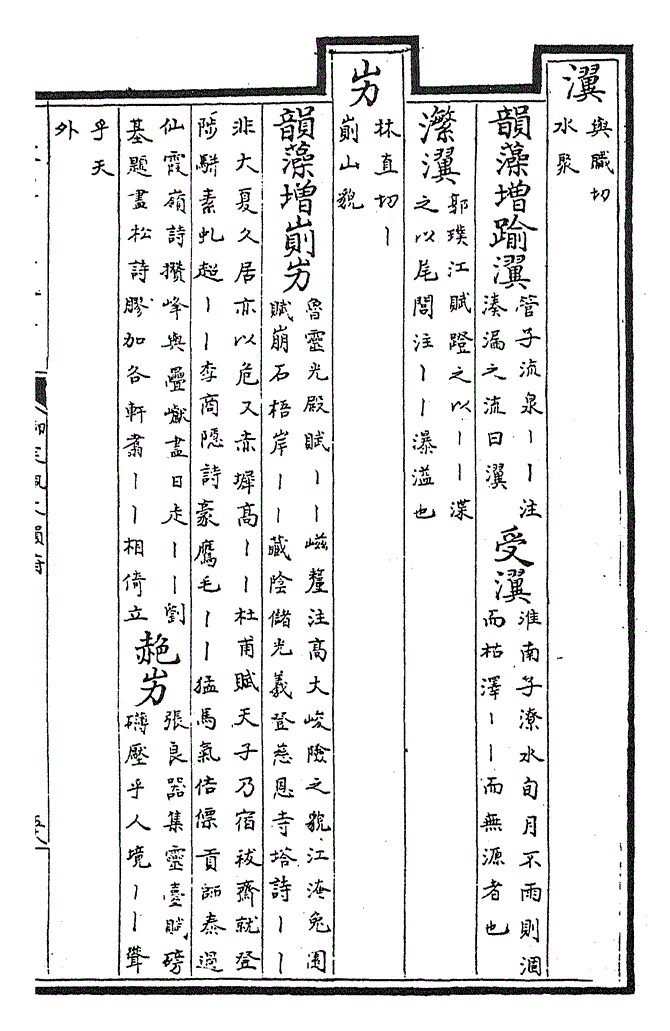 瀷
與職切
水聚
韻藻增踰瀷
管子流泉丨丨注
湊漏之流曰瀷
受瀷
淮南子潦水旬月不雨則涸
而枯澤丨丨而無源者也
瀿瀷
郭璞江賦磴之以丨丨渫
之以尾閭注丨丨瀑溢也
屴
林直切丨
崱山貌
韻藻增崱屴
魯靈光殿賦丨丨嵫釐注高大峻險之貌江淹兔園
賦崩石梧岸丨丨藏陰儲光羲登慈恩寺塔詩丨丨
非大夏久居亦以危又赤墀高丨丨杜甫賦天子乃宿祓齋就登
陟駢素虬超丨丨李商隱詩豪鷹毛丨丨猛馬氣佶僳貢師泰過
仙霞嶺詩攢峰與疊巘盡日走丨丨劉
基題畫松詩膠加各軒翥丨丨相倚立
赩屴
張良器集靈臺賦磅
礴壓乎人境丨丨聳
乎天
外